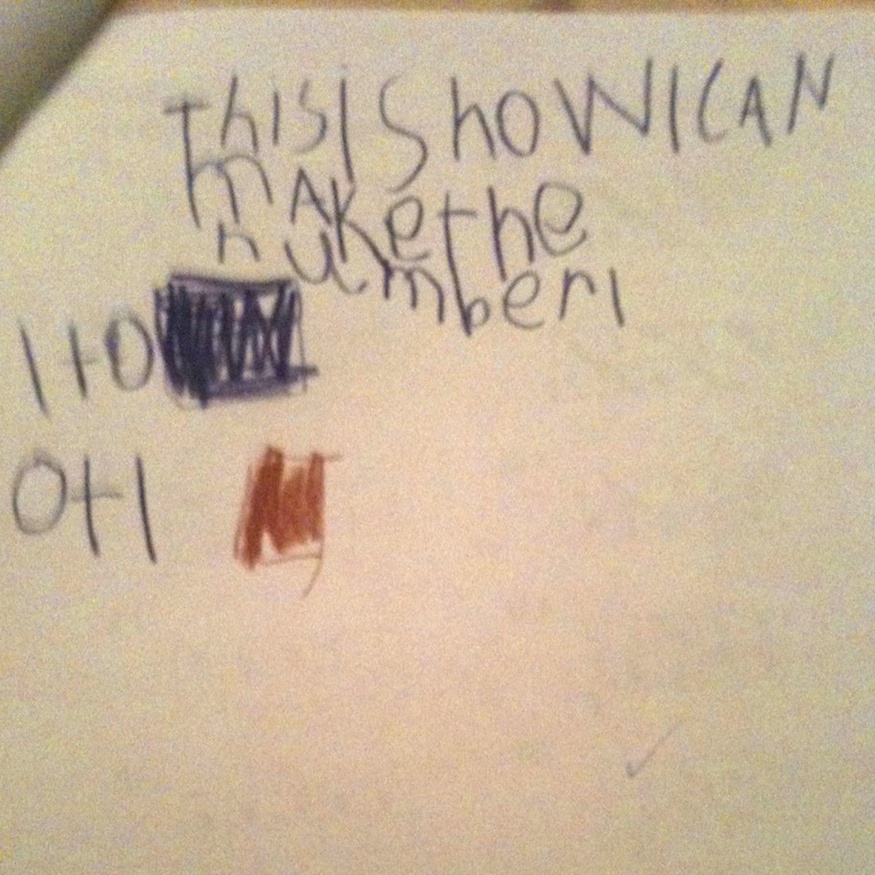 This IS hoW I CAN
mAke the
number 1
1+0
0+1